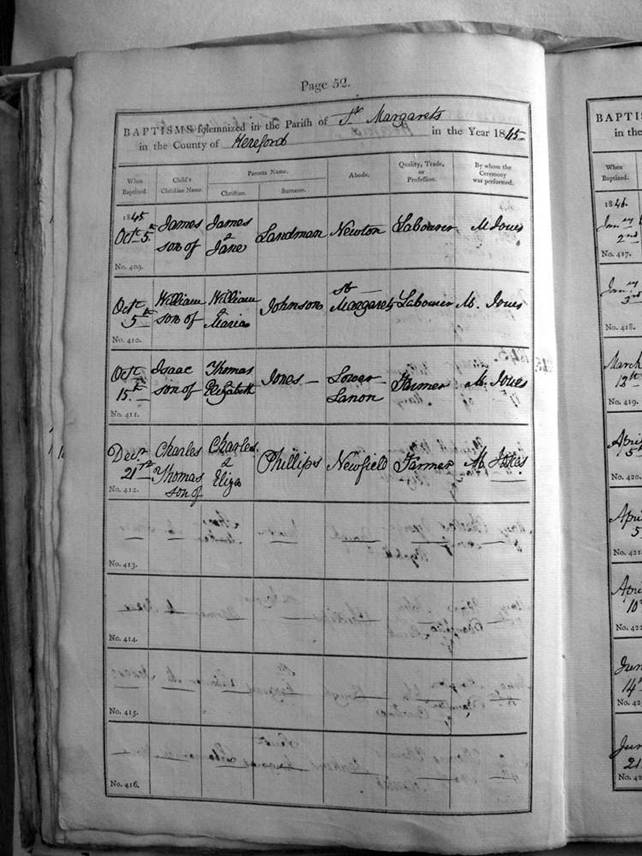 Page 52.
BAPTISMS solemnized in the Parish of St Margarets
in the County of Hereford in the Year 1845
When Baptized. Child's Christian Name. Parents Name. Abode. Quality, Trade, or Profession. By whom the Ceremony was performed.
Christian. Surname.
1845
Octr 5th James son of James & Jane Landman Newton Labourer M Jones
No. 409.
Octr 5th William son of William & Maria Johnson St Margarets Labourer M. Jones
No. 410.
Octr 15th Isaac son of Thomas Elizabeth Jones Lower Farmer M. Jones
No. 411.
Decr 21st Charles Thomas son of Charles & Eliza Phillips Newfield Farmer M. Jones
No. 412.
No. 413.
No. 414.
No. 415.
No. 416.
BAPTI
in the
When Baptized.
1846.
2nd
No. 417.
3rd
No. 418.
March
12th
No. 419.
April
5th
No. 420.
April
5
No. 421
April
10
No. 422
June
14
No. 42
June
21
No. 42